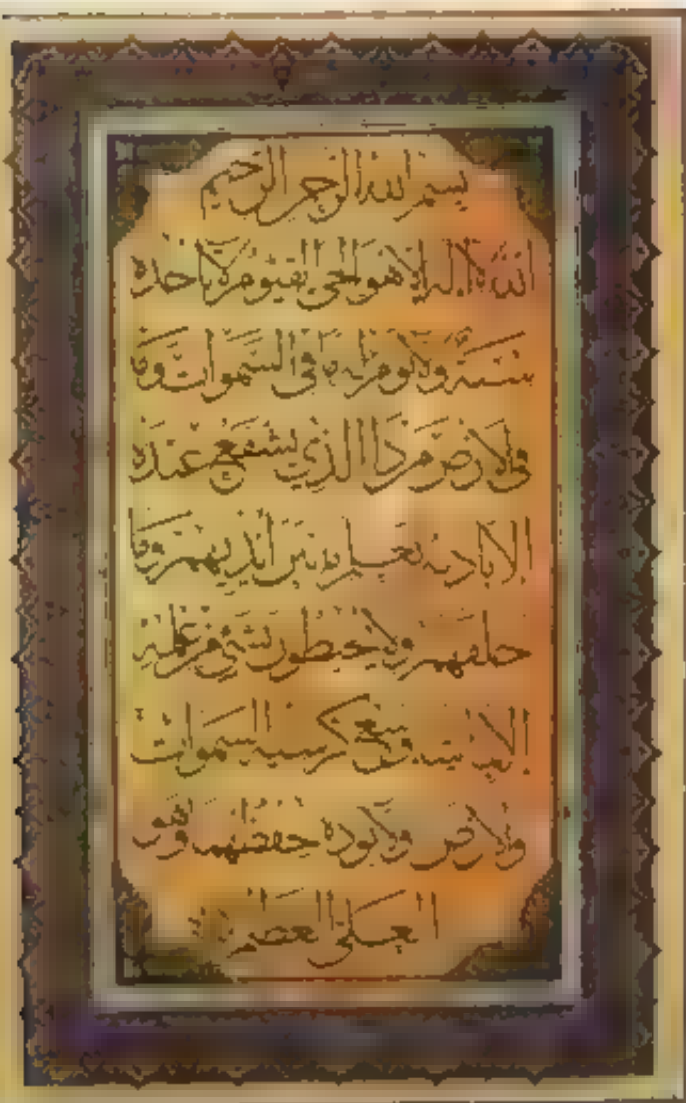 بسم الله الرحمن الرحيم
الله لا إله إلا هو الحي القيوم لا تأخذه
سنة ولا نوم له ما في السموات وما
في الارض من ذا الذي يشفع عنده
الا باذنه يعلم ما بين ايديهم وما
خلفهم ولا يحيطون بشيء من علمه
الا بما شاء وسع كرسيه السموات
والارض ولا يؤده حفظهما وهو
العلي العظيم